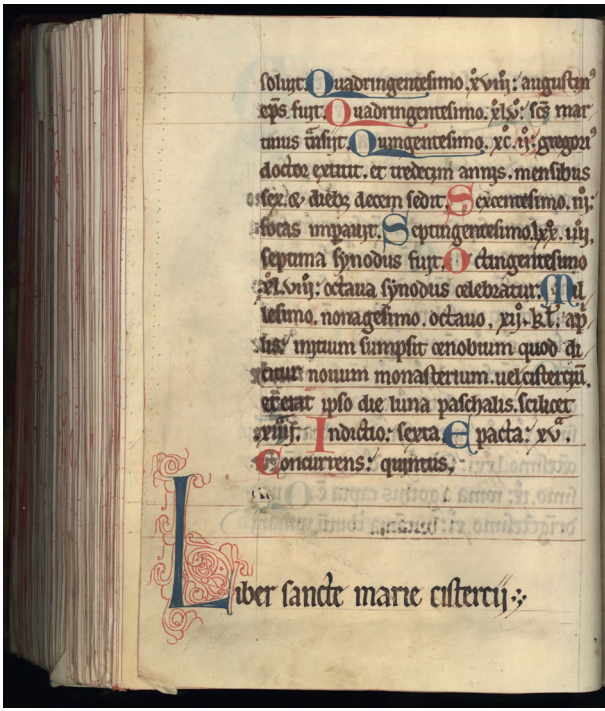 soluit. Quadringentesimo. xviij: augustin⁹
ep̄s fuit. Quadringentesimo. xlv: scs̄ mar
tinus t̄nsijt. Quingentesimo. xc. ij: gregori⁹
doctor extitit. et tredecim annis. mensibus
sex. & dieb; decem sedit. Sexcentesimo. iij:
focas imp̄auit. Septingentesimo. lxx. iiij.
septima synodus fuit. Octingentesimo
xl. viij: octaua synodus celebratur. Mil
lesimo. nonagesimo. octauo. xij. kl. ap
lis: initium sumpsit cenobium quod di
citur nouum monasterium. uel cisterciū.
et erat ipso die luna paschalis. scilicet
xiiij. Indictio: sexta. Epacta: xv.
Concurrens: quintus,
Liber sancte marie cistercij